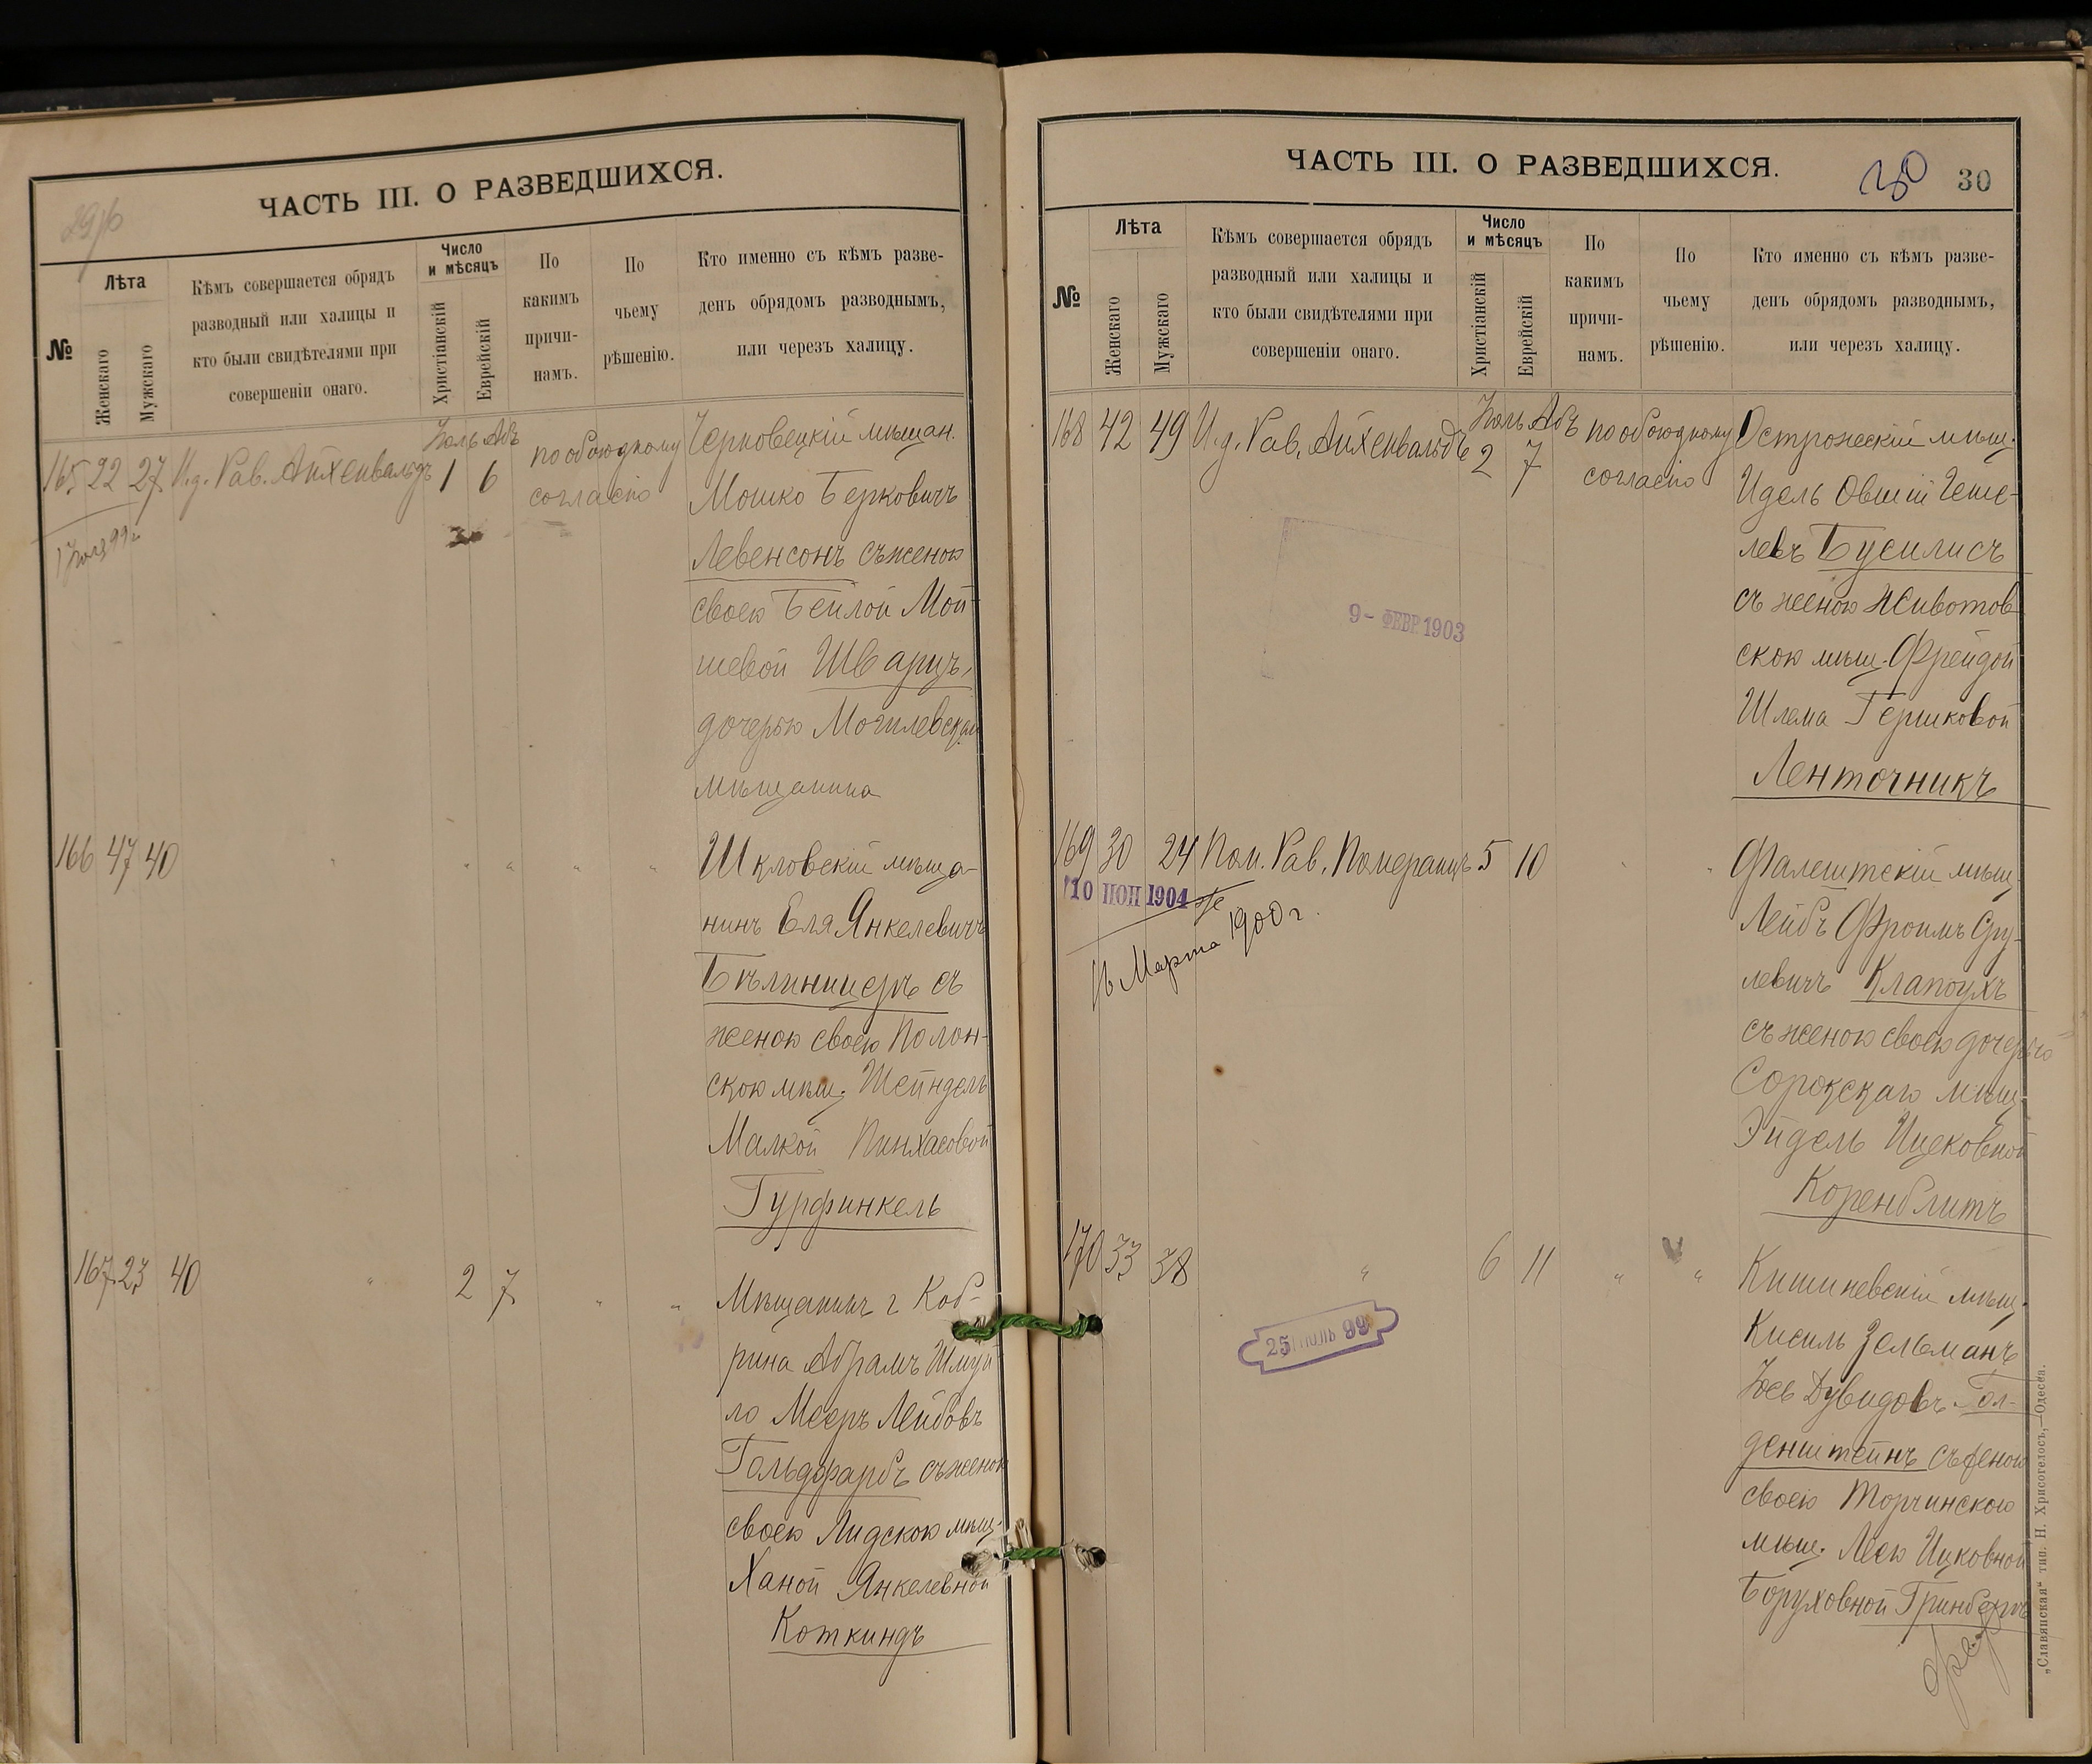 29/б
ЧАСТЬ III. О РАЗВЕДШИХСЯ.
№
Лѣта
Женскаго
Мужскаго
Кѣмъ совершается обрядъ
разводный или халицы и
кто были свидѣтелями при
совершеніи онаго.
Число
и мѣсяцъ
Христіанскій
Еврейскій
По
какимъ
причи-
намъ.
По
чьему
рѣшенію.
Кто именно съ кѣмъ разве-
денъ обрядомъ разводнымъ,
или черезъ халицу.
Іюль Абъ
165 22 27 И.д. Рав. Айхенвальдъ 1 6 по обоюдному
согласію
Черновецкій мѣщан.
Мошко Берковичъ
Левенсонъ съ женою
своею Бейлой Мой-
шевой Шварцъ,
дочерью Могилевскаго
мѣщанина
166 47 40 " " " " "
Шкловскій мѣща-
нинъ Еля Янкелевичъ
съ
женою своею Полон-
скою мѣщ. Шейндель
Малкой Пинхасовой
Гурфинкель
167 23 40 " 2 7 " "
Мѣщанинъ г Коб-
рина Абрамъ Шмуй
ло Мееръ Лейбовъ
Гольдфарбъ съ женою
своею Лидскою мѣщ.
Ханой Янкелевной
Коткиндъ
ЧАСТЬ III. О РАЗВЕДШИХСЯ.
30 30
№
Лѣта
Женскаго
Мужскаго
Кѣмъ совершается обрядъ
разводный или халицы и
кто были свидѣтелями при
совершеніи онаго.
Число
и мѣсяцъ
Христіанскій
Еврейскій
По
какимъ
причи-
намъ.
По
чьему
рѣшенію.
Кто именно съ кѣмъ разве-
денъ обрядомъ разводнымъ,
или черезъ халицу.
Іюль Абъ
168 42 49 И.д. Рав. Айхенвальдъ 2 7 по обоюдному
согласію
9- ФЕВР. 1903
Острожскій мѣщ.
Идель Овшій Геше-
левъ Бусилисъ
съ женою Животов
скою мѣщ. Фрейдой
Шлема Гершковой
Ленточникъ
169 30 24 Пом. Рав. Померанцъ 5 10 " "
10 ІЮН 1904
16 Марта 1900 г.
Фалештскій мѣщ.
Лейбъ Фроимъ Сру-
левичъ Клапоухъ
съ женою своею дочерью
Сорокскаго мѣщ.
Эйдель Ицековной
Коренблитъ
170 33 38 " 6 11 " "
25 ІЮЛЬ 99
Кишиневскій мѣщ.
Кисиль Зельманъ
Іось Дувидовъ Гол-
денштейнъ съ женою
своею Торчинскою
мѣщ. Леею Ицковной
Боруховной Гринбергъ
„Славянская“ тип. Н. Хрисогелосъ,—Одесса.